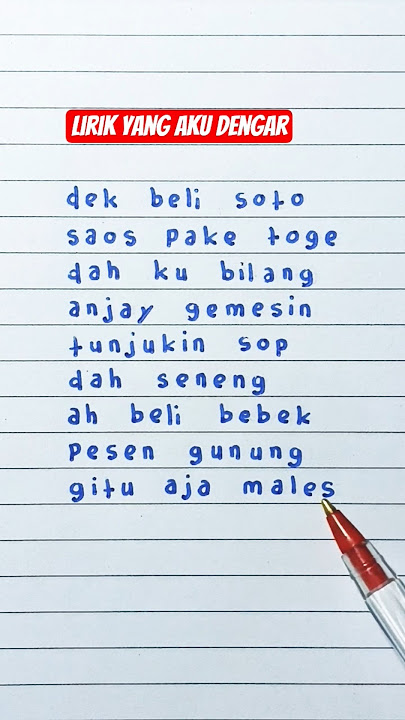 LIRIK YANG AKU DENGAR
dek beli soto
saos pake toge
dah ku bilang
anjay gemesin
tunjukin sop
dah seneng
ah beli bebek
pesen gunung
gitu aja males